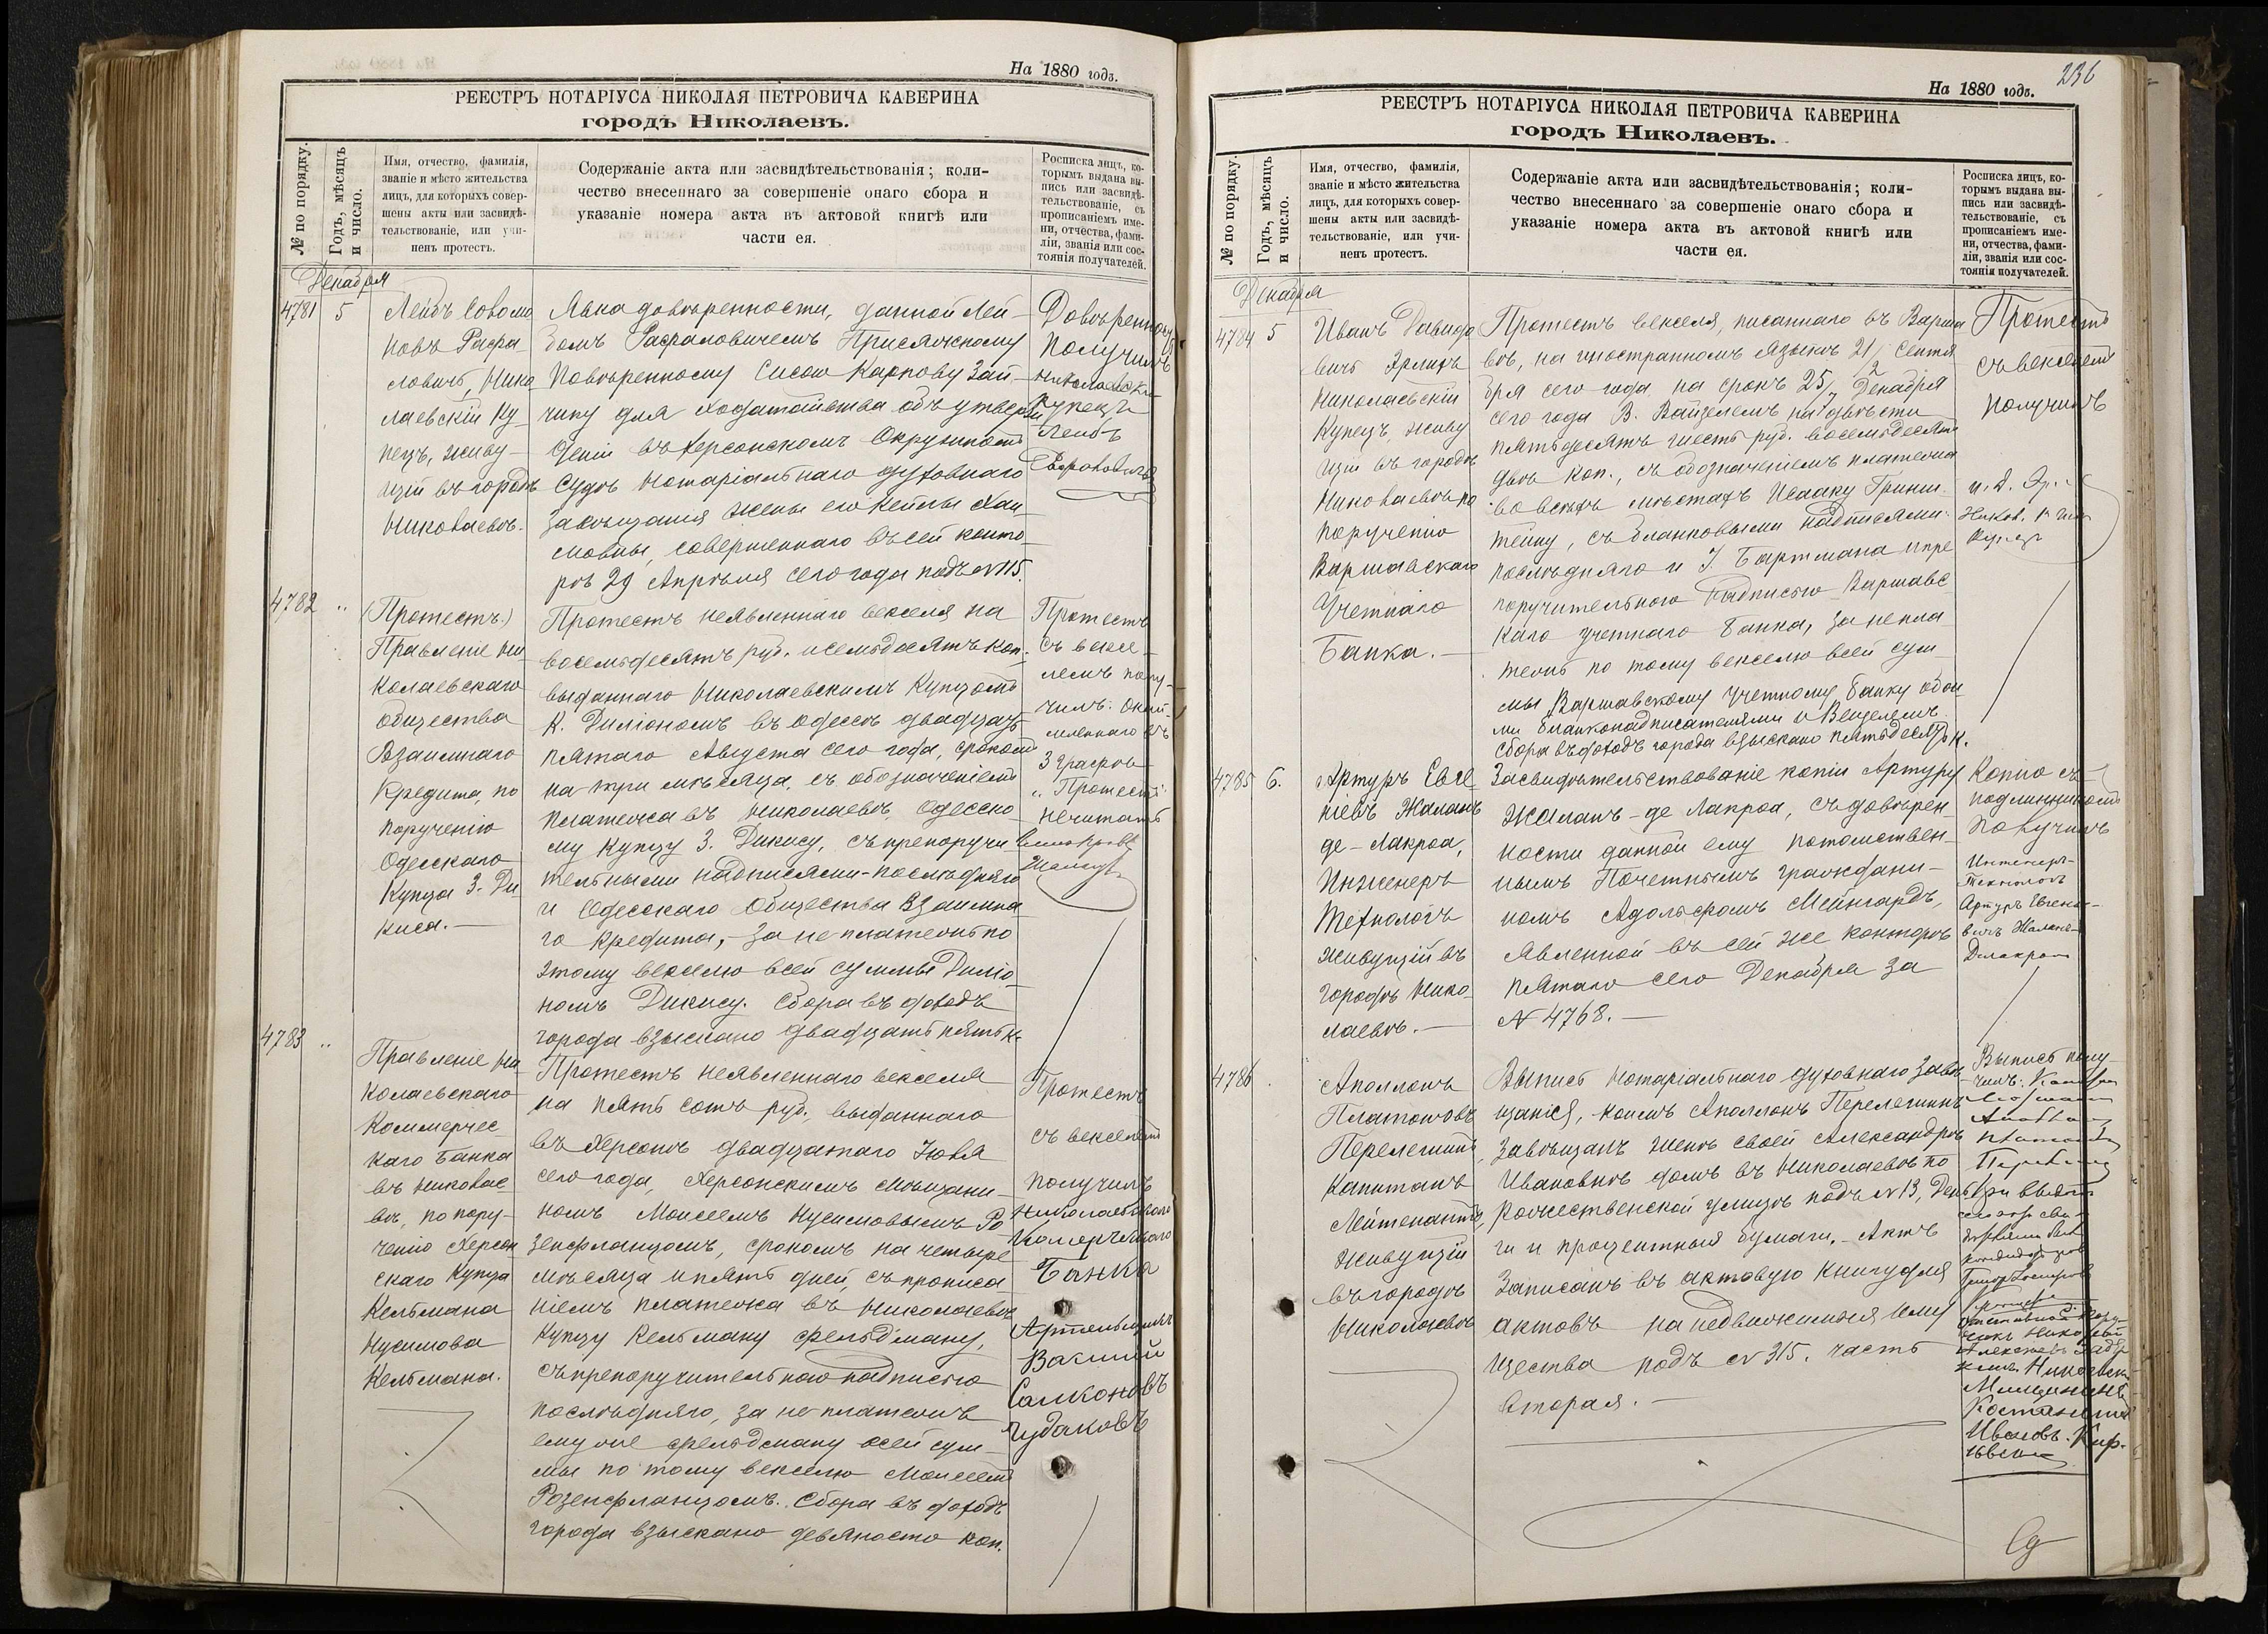 На 1880 годъ.
РЕЕСТРЪ НОТАРІУСА НИКОЛАЯ ПЕТРОВИЧА КАВЕРИНА
городъ Николаевъ.
№ по порядку.
Годъ, мѣсяцъ
и число.
Имя, отчество, фамилія,
званіе и мѣсто жительства
лицъ, для которыхъ совер-
шены акты или засвидѣ-
тельствованіе, или учи-
ненъ протестъ.
Содержаніе акта или засвидѣтельствованія; коли-
чество внесеннаго за совершеніе онаго сбора и
указаніе номера акта въ актовой книгѣ или
части ея.
Росписка лицъ, ко-
торымъ выдана вы-
пись или засвидѣ-
тельствованіе, съ
прописаніемъ име-
ни, отчества, фами-
ліи, званія или сос-
тоянія получателей.
Декабря
4781 5
Лейбъ Соломо
новъ Рафа
ловичъ, Нико
лаевскій Ку
пецъ, живу-
щій въ городѣ
Николаевѣ.
Явка довѣренности, данной Лей-
бомъ Рафаловичемъ Присяжному
Повѣренному Сысою Карпову Зай-
чику для ходатайства объ утверж
деніи въ Херсонскомъ Окружномъ
Судѣ нотаріальнаго духовнаго
завѣщанія жены его Кейлы Хаи
мовны, совершеннаго въ сей конто
рѣ 29 Апрѣля сего года подъ № 115.
Довѣренность
получилъ
Николаевск.
Купецъ
Лейбъ
4782 "
(Протестъ)
Правленіе Ни
колаевскаго
общества
Взаимнаго
Кредита, по
порученію
Одесскаго
Купца З. Ди
киса.—
Протестъ неявленнаго векселя на
восемьдесятъ руб. и семьдесятъ коп.
выданнаго Николаевскимъ Купцомъ
К. Диліономъ въ Одессѣ двадцать
пятаго Августа сего года, срокомъ
на три мѣсяца, съ обозначеніемъ
платежа въ Николаевѣ, Одесско
му купцу З. Дикису, съ препоручи
тельными надписями-послѣдняго
и Одесскаго Общества Взаимна
го Кредита,- за неплатежъ по
этому векселю всей суммы Диліо
номъ Дикису. Сбора въ доходъ
города взыскано двадцать пять к.
Протестъ
съ вексе-
лемъ полу-
чилъ.
З графѣ
"Протестъ"
нечитать
4783 "
Правленіе Ни
колаевскаго
Коммерчес-
каго Банка
въ Николае-
вѣ, по пору-
ченію Херсон
скаго Купца
Кельмана
Нусимова
Кельмана.
Протестъ неявленнаго векселя
на пять сотъ руб., выданнаго
въ Херсонѣ двадцатаго Іюля
сего года, Херсонскимъ Мѣщани-
номъ Моисеемъ Нусимовымъ Ро
зенфланцомъ, срокомъ на четыре
мѣсяца и пять дней, съ прописа
ніемъ платежа въ Николаевѣ
Купцу Кельману Фельдману,
съ препоручительною надписью
послѣдняго, за неплатежъ
ему же Фельдману всей сум-
мы по тому векселю Моисеемъ
Розенфланцомъ. Сбора въ доходъ
города взыскано девяносто коп.
Протестъ
съ векселемъ
получилъ
Николаевскаго
Комерческаго
Банка
Артельщикъ
Василий
Салконовъ
Чудаковъ
236
На 1880 годъ.
РЕЕСТРЪ НОТАРІУСА НИКОЛАЯ ПЕТРОВИЧА КАВЕРИНА
городъ Николаевъ.
№ по порядку.
Годъ, мѣсяцъ
и число.
Имя, отчество, фамилія,
званіе и мѣсто жительства
лицъ, для которыхъ совер-
шены акты или засвидѣ-
тельствованіе, или учи-
ненъ протестъ.
Содержаніе акта или засвидѣтельствованія; коли-
чество внесеннаго за совершеніе онаго сбора и
указаніе номера акта въ актовой книгѣ или
части ея.
Росписка лицъ, ко-
торымъ выдана вы-
пись или засвидѣ-
тельствованіе, съ
прописаніемъ име-
ни, отчества, фами-
ліи, званія или сос-
тоянія получателей.
Декабря
4784 5
Иванъ Давидо
вичъ Эрлихъ
Николаевскій
Купецъ, живу
щій въ городѣ
Николаевѣ по
порученію
Варшавскаго
Учетнаго
Банка.—
Протестъ векселя, писаннаго въ Варша
вѣ, на иностранномъ языкѣ 21/2 Сентя
бря сего года на срокъ 25/7 Декабря
сего года В. Вайзелемъ на двѣсти
пятьдесятъ шесть руб. восемьдесятъ
двѣ коп., съ обозначеніемъ платежа
во всѣхъ мѣстахъ Исааку Гринш
тейну, съ бланковыми надписями
послѣдняго и І. Бартмана и пре
поручительною надписью Варшавс
каго учетнаго Банка, за непла
тежъ по тому векселю всей сум
мы Варшавскому Учетному Банку обои
ми бланконадписателями и Вецелемъ.
Сбора въ доходъ города взыскано пятьдесятъ к.
Протестъ
съ векселемъ
получилъ
4785 6.
Артуръ Евге
ніевъ Жаланъ
де-Лакроа,
Инженеръ
Технологъ
живущій въ
городѣ Нико
лаевѣ.—
Засвидѣтельствованіе копіи Артуру
Жаланъ-де Лакроа, съ довѣрен-
ности данной ему потомствен-
нымъ Почетнымъ граждани-
номъ Адольфомъ Мейнгардъ,
явленной въ сей же конторѣ
пятаго сего Декабря за
№ 4768.—
Копію съ
подлинникомъ
получилъ
Инженеръ-
Технологъ
Артуръ Евгені-
вичъ Жаланъ-
Делакроа
4786
Аполлонъ
Платоновъ
Перелешинъ,
Капитанъ
Лейтенантъ,
живущій
въ городѣ
Николаевѣ
Выпись нотаріальнаго духовнаго завѣ
щанія, коимъ Аполлонъ Перелешинъ
завѣщалъ женѣ своей Александрѣ
Ивановнѣ домъ въ Николаевѣ по
Рождественской улицѣ подъ № 13, день
ги и процентныя бумаги.- Актъ
записанъ въ актовую книгу для
актовъ на недвижимыя иму
щества подъ № 315. часть
вторая.—
Выпись полу-
чилъ:
Николаевск.
Мещанинъ
Костантинъ
Ивановъ.